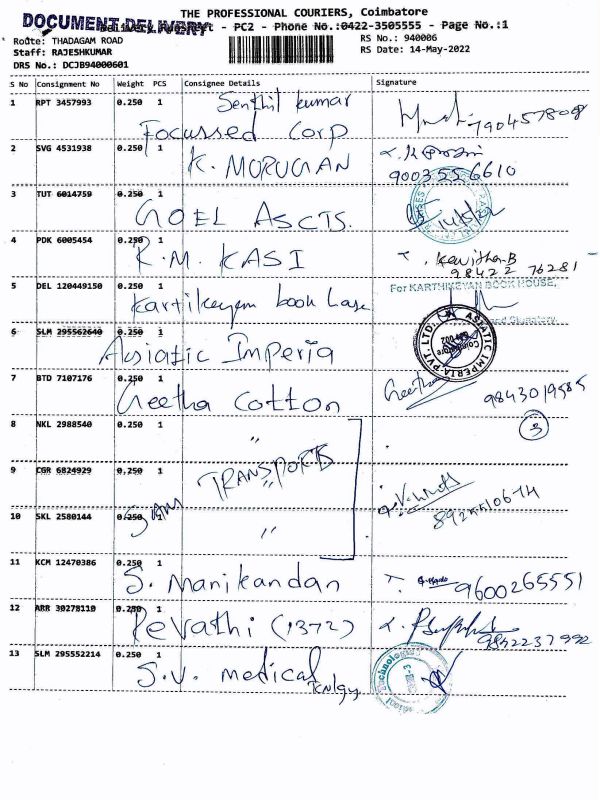 THE PROFESSIONAL COURIERS, Coimbatore
DOCUMENT DELIVERY - PC2 - Phone No.:0422-3505555 - Page No.:1
Route: THADAGAM ROAD
Staff: RAJESHKUMAR
DRS No.: DCJB94000601
RS No.: 940006
RS Date: 14-May-2022
S No Consignment No Weight PCS Consignee Details Signature
1 RPT 3457993 0.250 1 Senthil kumar
Focussed Corp
2 SVG 4531938 0.250 1 K. MORUGAN
9003556610
3 TUT 6014759 0.250 1 GOEL ASCTS.
14/5/22
4 PDK 6005454 0.250 1 R.M. KASI Kavitha.B
98422 76281
5 DEL 120449150 0.250 1 Kartikeyen book
For KARTHIKEYAN BOOK HOUSE,
6 SLM 295562640 0.250 1 Asiatic Imperia
ASIATIC IMPERIA PVT. LTD.
Coimbatore
7 BTD 7107176 0.250 1 Geetha Cotton Geetha
9843019585
8 NKL 2988540 0.250 1 " 3
9 CGR 6824929 0.250 1 TRANSPORTS
"
10 SKL 2580144 0.250 1 "
11 KCM 12470386 0.250 1 S. Manikandan 9600265551
12 ARR 30278110 0.250 1 Revathi (1372) 9842237992
13 SLM 295552214 0.250 1 S.V. medical